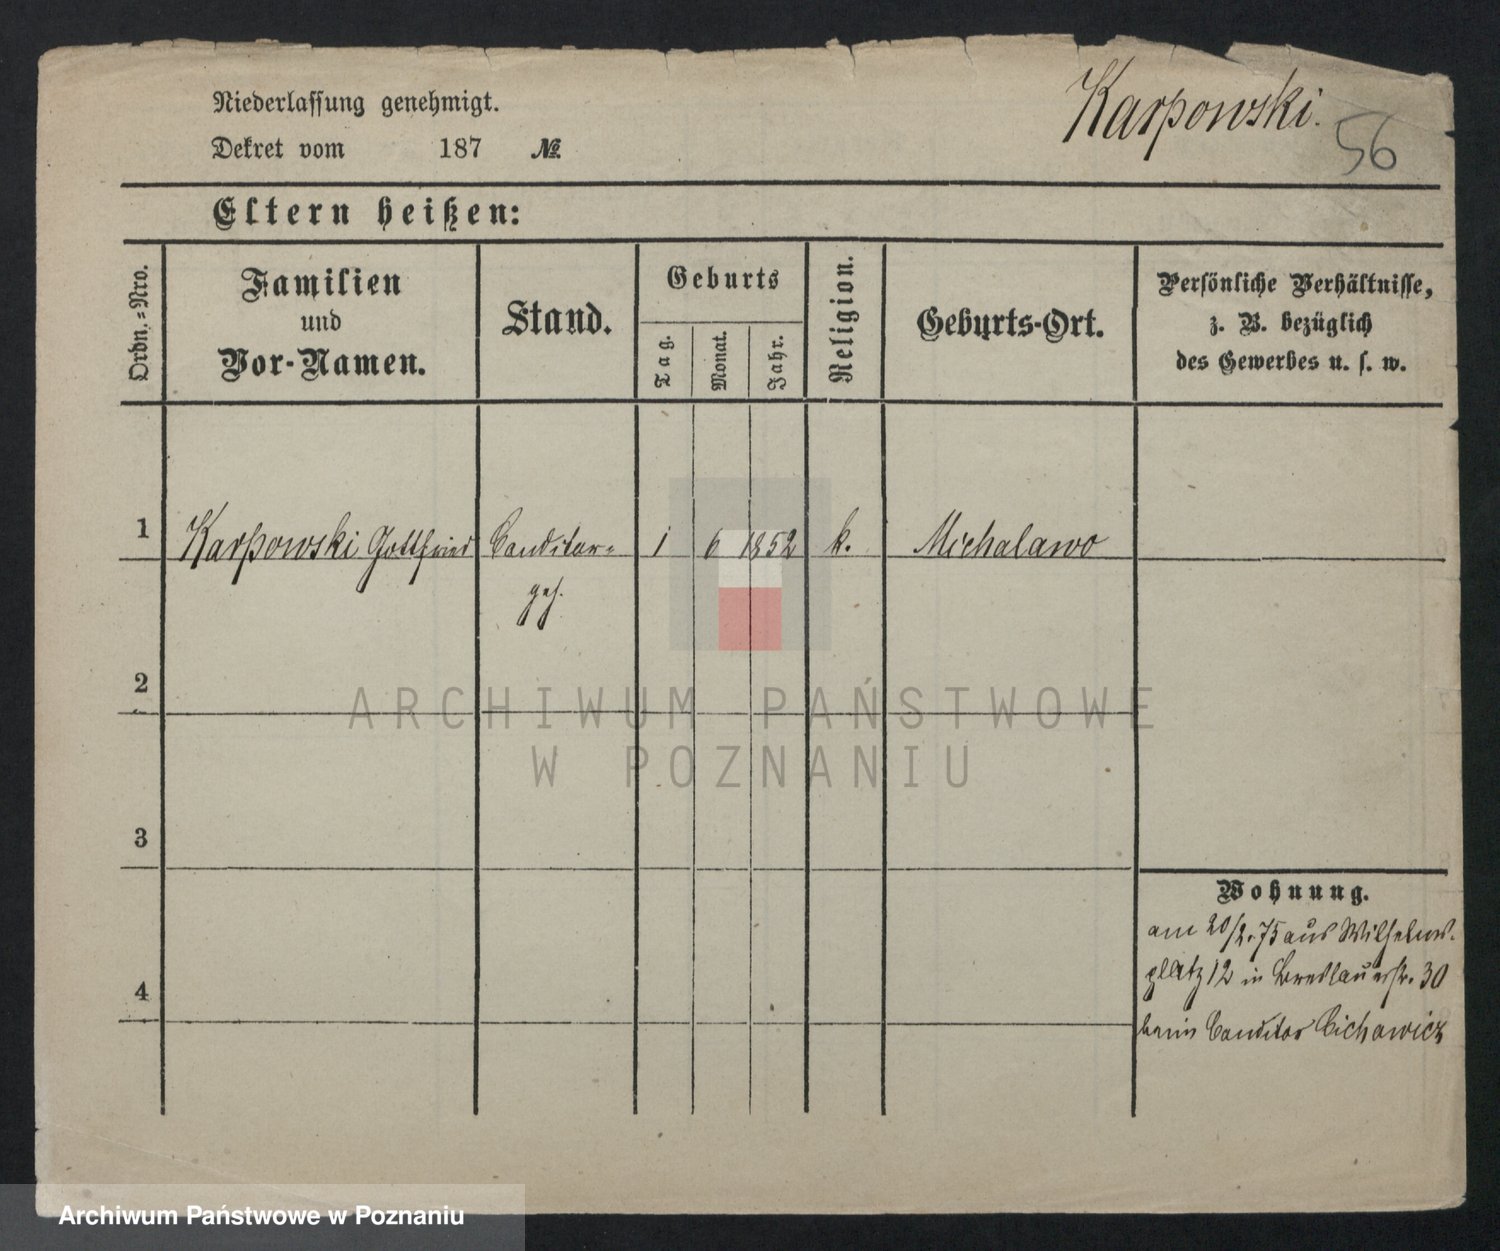 Karpowski.
56
Niederlassung genehmigt.
Dekret vom 187 №
Eltern heißen:
Ordn.=Nro.
Familien
und
Vor-Namen.
Stand.
Geburts
Tag.
Monat.
Jahr.
Religion.
Geburts-Ort.
Persönliche Verhältnisse,
z. B. bezüglich
des Gewerbes u. s. w.
1 Karpowski Gottfried Conditor= 1 6 1852 k. Michalawo
geh.
2
3
4
Wohnung.
am 20/2.75 aus Wilhelms-
platz 12 in Breslauerstr. 30
beim Conditor Cichowicz
ARCHIWUM PAŃSTWOWE
W POZNANIU
Archiwum Państwowe w Poznaniu